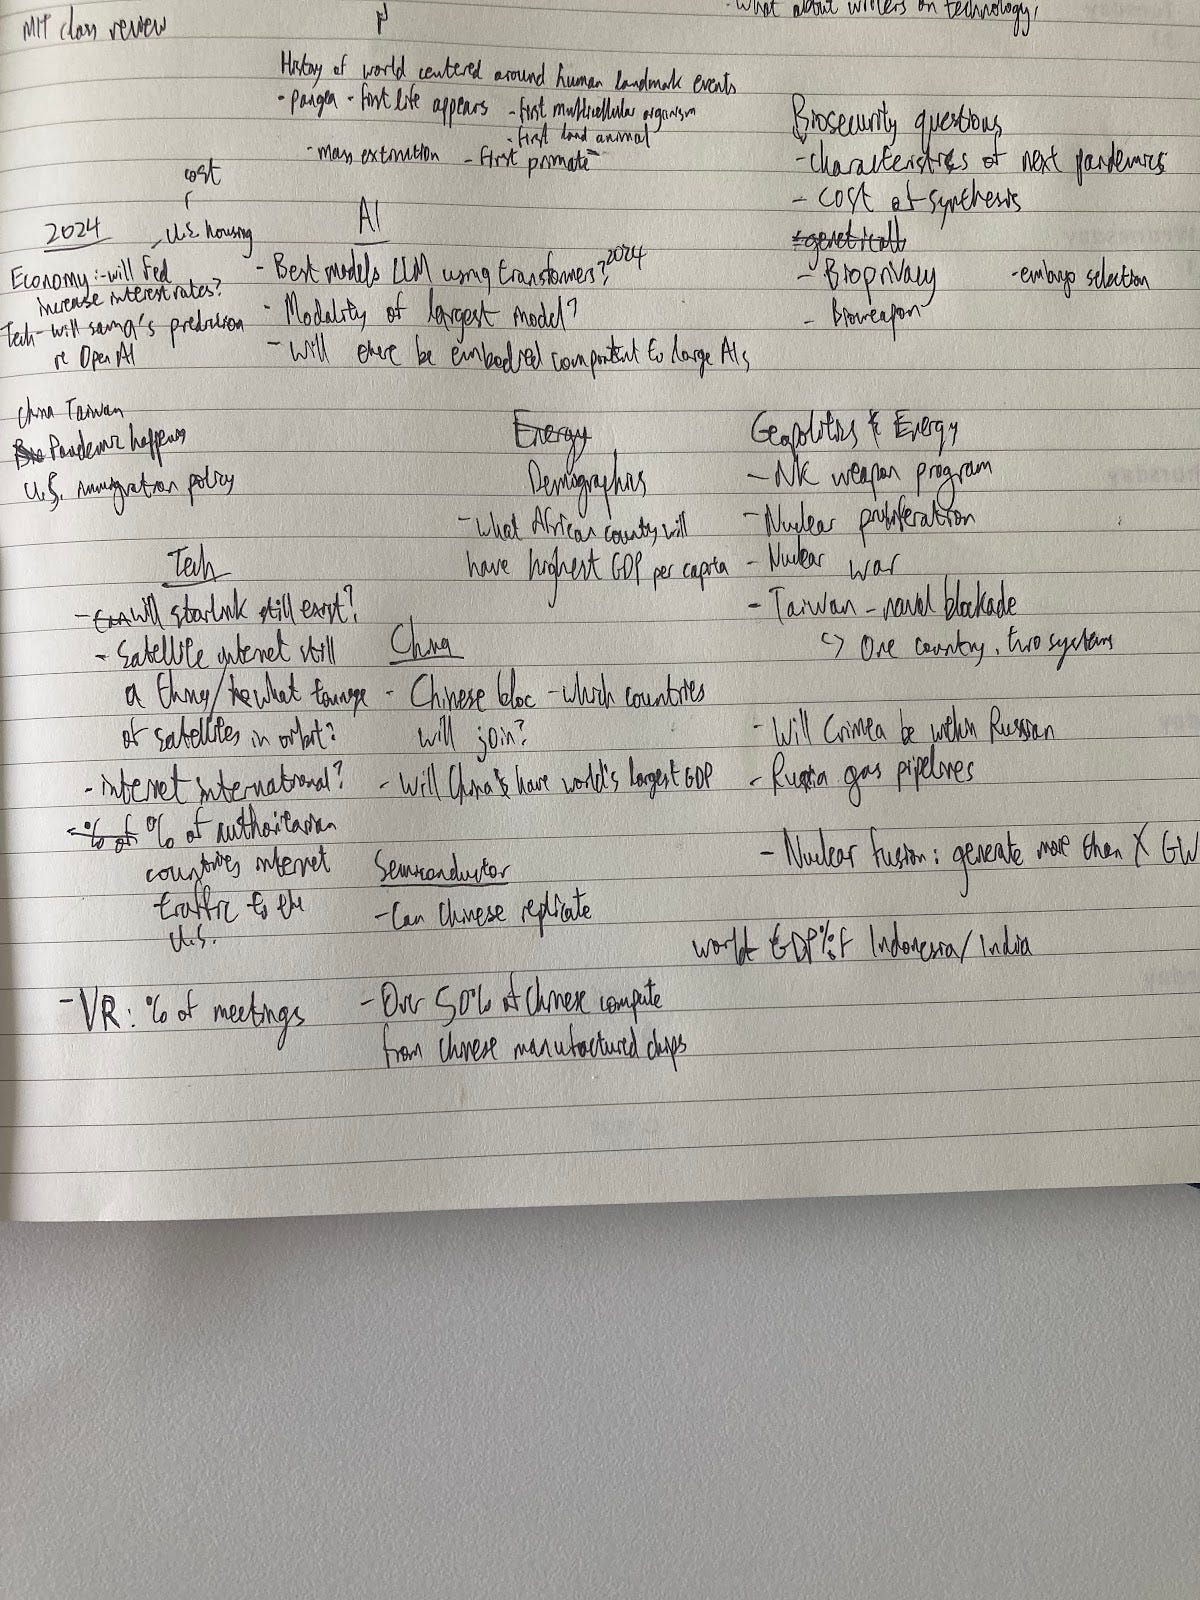 - What about writers on technology,
MIT class review
History of world centered around human landmark events
- pangea - first life appears - first multicellular organism
- first land animal
- mass extinction - first primate
Biosecurity questions
- characteristics of next pandemics
- cost of synthesis
- genetically
- Bioprivacy - embryo selection
- Bioweapon
cost
2024
- U.S. housing
Economy: - will Fed
increase interest rates?
Tech - will sama's prediction
re Open AI
China Taiwan
Bio Pandemic happens
U.S. immigration policy
AI
- Best models LLM using transformers? 2024
- Modality of largest model?
- will there be embodied component to large AIs
Energy
Demographics
- what African country will
have highest GDP per capita
Geopolitics & Energy
- NK weapon program
- Nuclear proliferation
- Nuclear war
- Taiwan - naval blockade
↳ One country, two systems
- Will Crimea be within Russian
- Russia gas pipelines
- Nuclear fusion: generate more than X GW
Tech
- will starlink still exist?
- Satellite internet still
a thing / what tonnage
of satellites in orbit?
- internet international?
- % of % of authoritarian
countries internet
traffic to the
U.S.
- VR: % of meetings
China
- Chinese bloc - which countries
will join?
- Will China have world's largest GDP
Semiconductor
- Can Chinese replicate
- Over 50% of Chinese compute
from Chinese manufactured chips
world GDP % of Indonesia/India